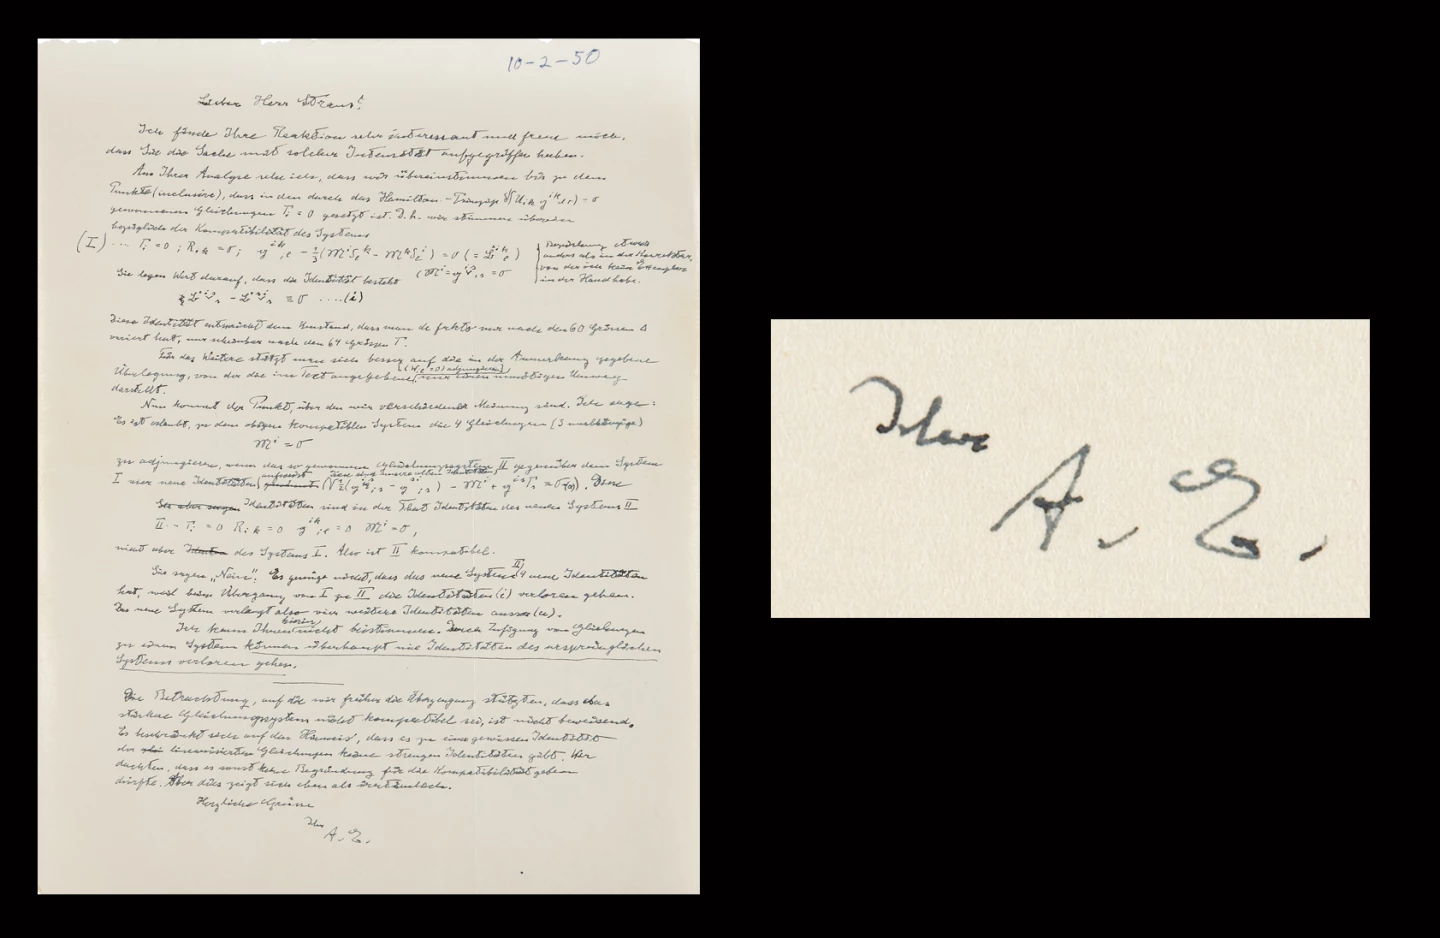 10-2-50
Lieber Herr Straus!
Ich fände Ihre Reaktion sehr interessant und freue mich,
dass Sie die Sache mit solcher Intensität aufgegriffen haben.
Aus Ihrer Analyse sehe ich, dass wir übereinstimmen bis zu dem
Punkte (inclusive), dass in den durch das Hamilton-Prinzip
gewonnenen Gleichungen Γi = 0 gesetzt ist. D.h. wir stimmen überein
bezüglich der Kompatibilität des Systems
(I) ... Γi = 0 ; Rik = 0 ;
Bezeichnung etwas
anders als in der Korrektur,
von der ich kein Exemplar
in der Hand habe.
Sie legen Wert darauf, dass die Identität besteht
≡ 0 ....(i)
Diese Identität entspricht dem Umstand, dass man de facto nur nach den 60 Grössen Δ
variiert hat, nur scheinbar nach den 64 Grössen Γ.
Für das Weitere stützt man sich besser auf die in der Anmerkung gegebene
Überlegung, von der die im Text angegebene nur einen unnötigen Umweg
darstellt.
Nun kommt der Punkt, über den wir verschiedener Meinung sind. Ich sage:
Es ist erlaubt, zu dem obigen kompatiblen System die 4 Gleichungen (3 unabhängige)
𝔐i = 0
zu adjungieren, wenn das so gewonnene Gleichungssystem II gegenüber dem System
I vier neue Identitäten aufweist Diese
Identitäten sind in der That Identitäten des neuen Systems II
II .. Γi = 0 Rik = 0 gik;l = 0 𝔐i = 0,
nicht aber des Systems I. Also ist II kompatibel.
Sie sagen „Nein". Es genüge nicht, dass das neue System II 4 neue Identitäten
hat, weil beim Übergang von I zu II die Identitäten (i) verloren gehen.
Das neue System verlangt also vier weitere Identitäten ausser (u).
Ich kann Ihnen hierin nicht beistimmen. Durch Zufügung von Gleichungen
zu einem System können überhaupt nie Identitäten des ursprünglichen
Systems verloren gehen.
Die Betrachtung, auf die wir früher die Überzeugung stützten, dass das
stärkere Gleichungssystem nicht kompatibel sei, ist nicht beweisend.
Es beschränkt sich auf den Hinweis, dass es zu einer gewissen Identität
der linearisierten Gleichungen keine strengen Identitäten gibt. Wir
dachten, dass es sonst keine Begründung für die Kompatibilität geben
dürfte. Aber dies zeigt sich eben als irrtümlich.
Herzliche Grüsse
Ihr
A. E.
Ihr
A. E.